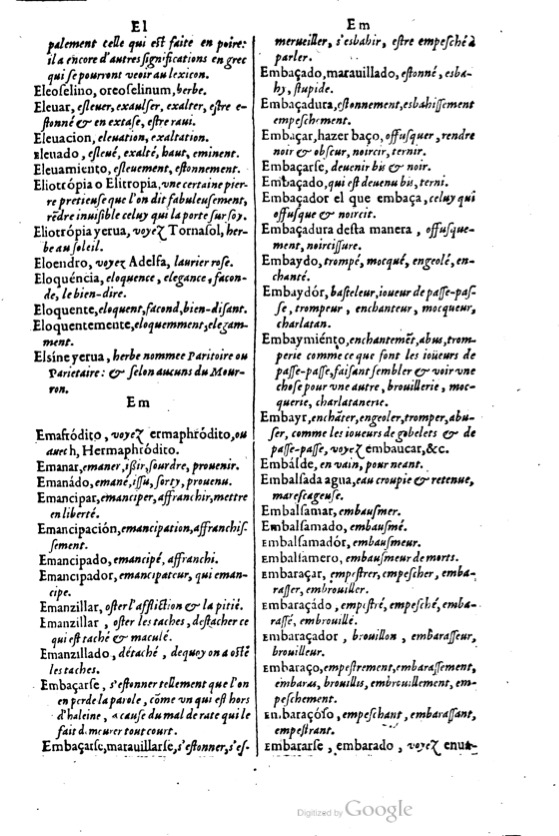 El
palement celle qui est faite en poire:
il a encore d'autres significations en grec
qui se pourront veoir au lexicon.
Eleoselino, oreoselinum, herbe.
Eleuar, esleuer, exaulser, exalter, estre e-
stonné & en extase, estre raui.
Eleuacion, eleuation, exaltation.
Eleuado, esleué, exalté, haut, eminent.
Eleuamiento, esleuement, estonnement.
Eliotrópia o Elitropia, vne certaine pier-
re pretieuse que l'on dit fabuleusement,
rẽdre inuisible celuy qui la porte sur soy.
Eliotrópia yerua, voyez Tornasol, her-
be au soleil.
Eloendro, voyez Adelfa, laurier rose.
Eloquéncia, eloquence, elegance, facon-
de, le bien-dire.
Eloquente, eloquent, facond, bien-disant.
Eloquentemente, eloquemment, elegam-
ment.
Elsíne yerua, herbe nommee Paritoire ou
Parietaire: & selon aucuns du Mour-
ron.
Em
Emafródito, voyez ermaphródito, ou
auec h, Hermaphródito.
Emanar, emaner, issir, sourdre, prouenir.
Emanádo, emané, issu, sorty, prouenu.
Emancipar, emanciper, affranchir, mettre
en liberté.
Emancipación, emancipation, affranchis-
sement.
Emancipado, emancipé, affranchi.
Emancipador, emancipateur, qui eman-
cipe.
Emanzillar, oster l'affliction & la pitié.
Emanzillar, oster les taches, destacher ce
qui est taché & maculé.
Emanzillado, détaché, de quoy on a osté
les taches.
Embaçarse, s'estonner tellement que l'on
en perde la parole, cõme vn qui est hors
d'haleine, à cause du mal de rate qui le
fait demeurer tout court.
Embaçarse, marauillarse, s'estonner, s'es-
Em
merueiller, s'esbahir, estre empesché à
parler.
Embaçado, marauillado, estonné, esba-
hy, stupide.
Embaçadura, estonnement, esbahissement
empeschement.
Embaçar, hazer baço, offusquer, rendre
noir & obscur, noircir, ternir.
Embaçarse, deuenir bis & noir.
Embaçado, qui est deuenu bis, terni.
Embaçador el que embaça, celuy qui
offusque & noircit.
Embaçadura desta manera, offusque-
ment, noircissure.
Embaydo, trompé, mocqué, engeolé, en-
chanté.
Embaydór, basteleur, ioueur de passe-pas-
se, trompeur, enchanteur, mocqueur,
charlatan.
Embaymiénto, enchantemẽt, abus, trom-
perie comme ce que font les ioüeurs de
passe-passe, faisant sembler & voir vne
chose pour vne autre, brouillerie, moc-
querie, charlatanerie.
Embayr, enchãter, engeoler, tromper, abu-
ser, comme les ioueurs de gobelets & de
passe-passe, voyez embaucar, &c.
Embálde, en vain, pour neant.
Embalsada agua, eau croupie & retenue,
marescageuse.
Embalsamar, embausmer.
Embalsamado, embausmé.
Embalsamadór, embausmeur.
Embalsamero, embausmeur de morts.
Embaraçar, empestrer, empescher, emba-
rasser, embrouiller.
Embaraçádo, empestré, empesché, emba-
rassé, embrouillé.
Embaraçador, brouillon, embarasseur,
brouilleur.
Embaraço, empestrement, embarassement,
embaras, brouillis, embrouillement, em-
peschement.
Embaraçóso, empeschant, embarassant,
empestrant.
Embararse, embarado, voyez enua-
Digitized by Google